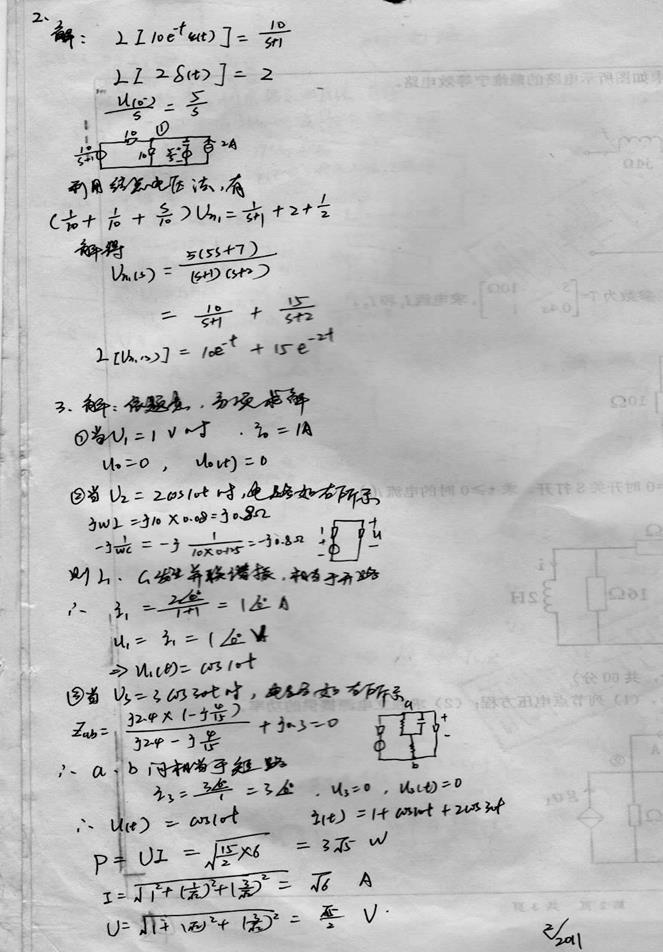 2.
解: L[10e^{-t}ε(t)] = 10/(s+1)
L[2δ(t)] = 2
u(0^-)/s = 5/s
10/(s+1) 10 ① 10 2A
利用结点电压法,有
(1/10 + 1/10 + s/10) U_{n1} = 1/(s+1) + 2 + 1/2
解得
U_{n1}(s) = 5(5s+7)/((s+1)(s+2))
= 10/(s+1) + 15/(s+2)
L[U_{n1}(s)] = 10e^{-t} + 15e^{-2t}
3. 解: 依题意, 分项求解
①当U₁=1V时. i₀=1A
u₀=0, u₀(t)=0
②当U₂=2cos10t时,电路如右所示
jωL=j10×0.08=j0.8Ω
-j 1/(ωC) = -j 1/(10×0.125) = -j0.8Ω
则L、C₁发生并联谐振,相当于开路
∴ i₁ = 2∠0°/(1+1) = 1∠0° A
u₁ = i₁ = 1∠0° V
⇒ u₁(t) = cos10t
③当U₃=3cos30t时,电路如右所示
Z_{ab} = j2.4×(-j4/15)/(j2.4-j4/15) + j0.3=0
∴ a、b间相当于短路
i₃ = 3∠0°/1 = 3∠0°. u₃=0, u₃(t)=0
∴ u(t) = cos10t i(t) = 1+cos10t+2cos30t
P = UI = √(15/2×6) = 3√5 W
I = √(1²+(1/√2)²+(3/√2)²) = √6 A
V.
2/2011